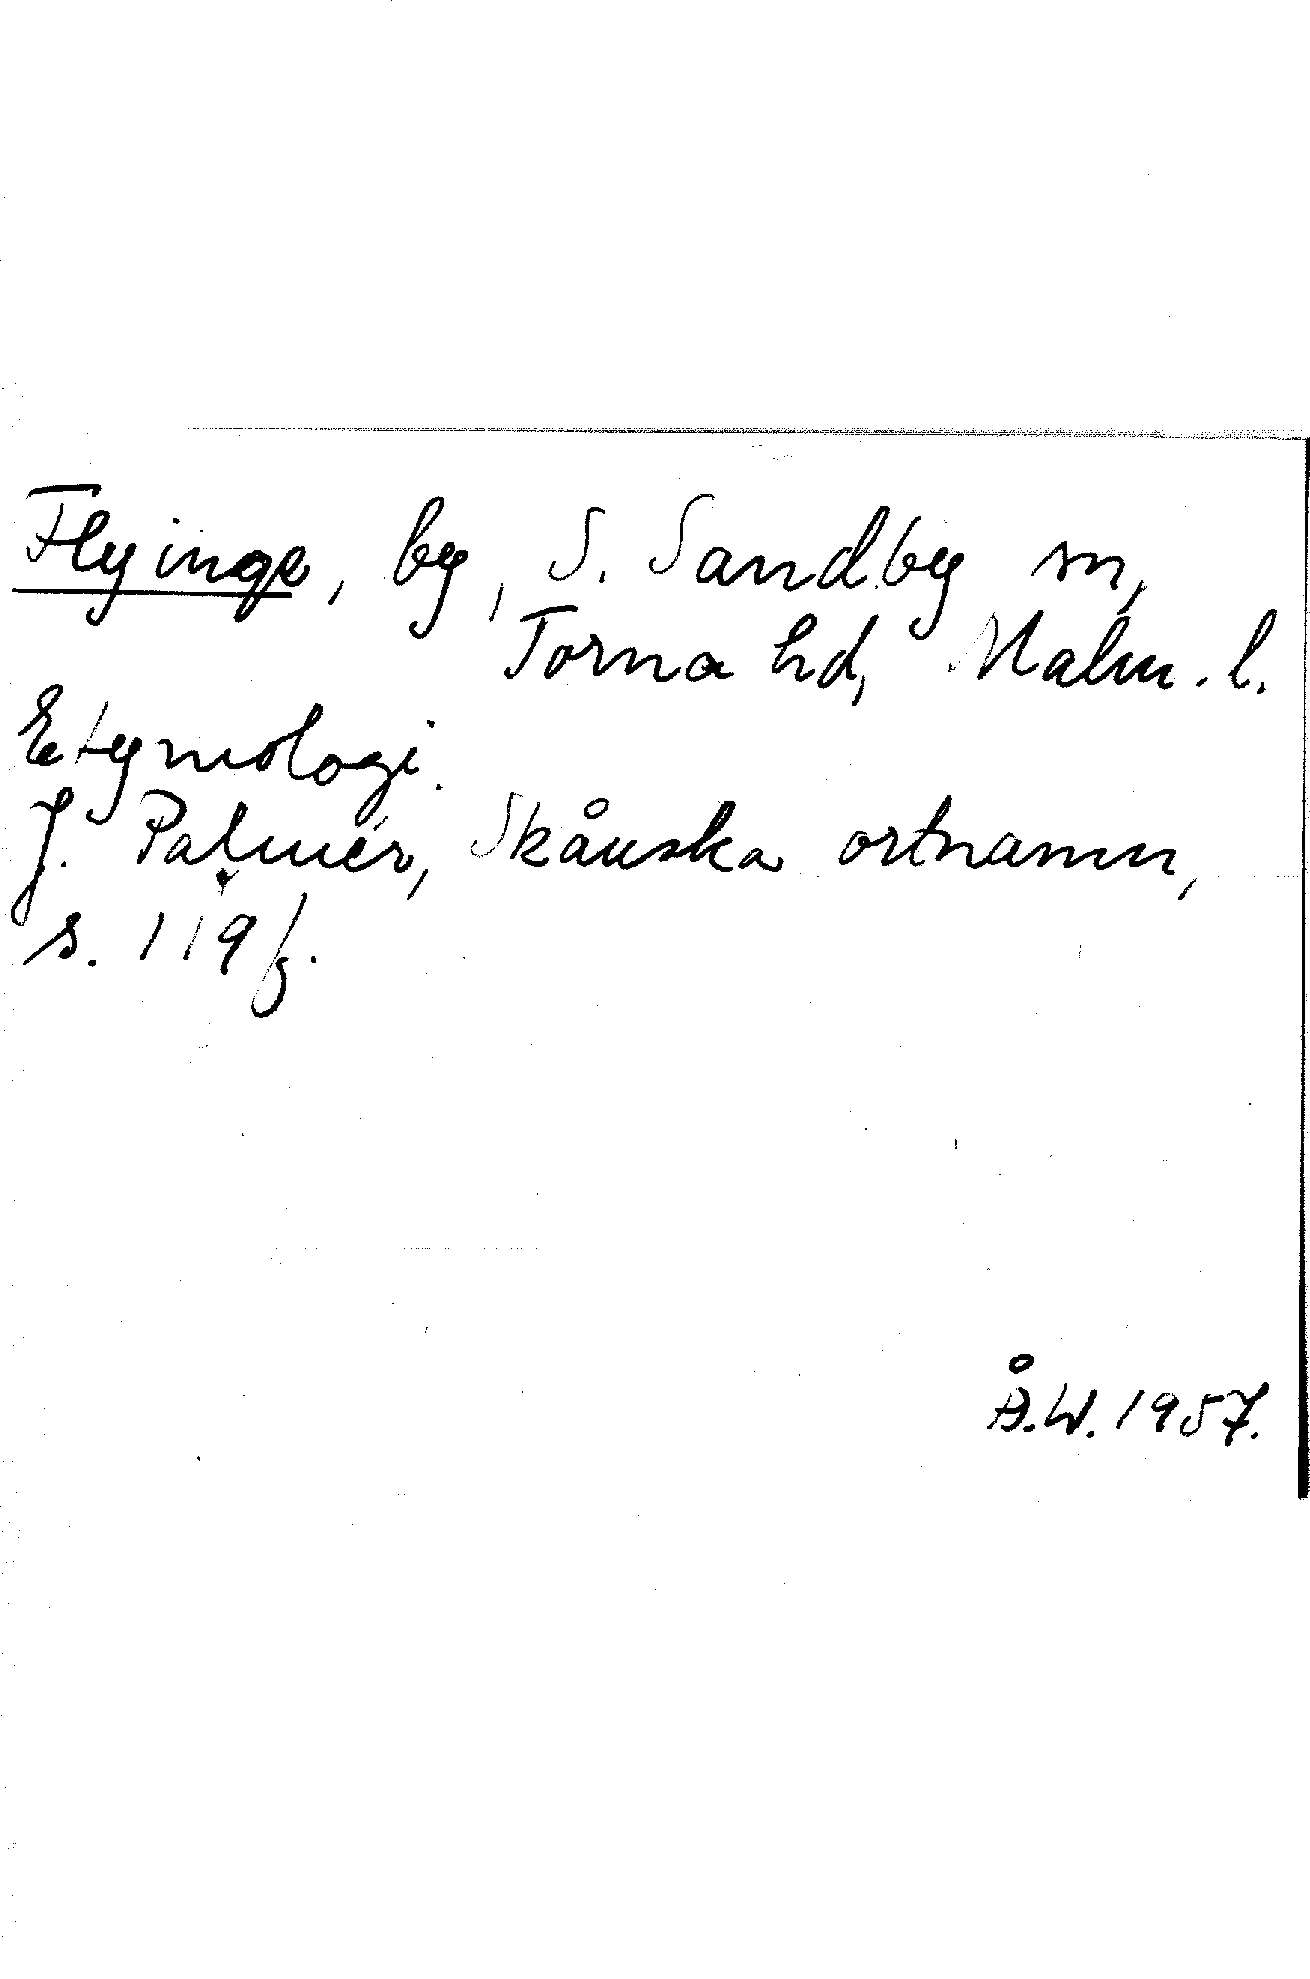 Flyinge, by, S. Sandby sn,
Torna hd, Malm. l.
Etymologi.
J. Palmér, Skånska ortnamn,
s. 119 f.
Å.W. 1957.